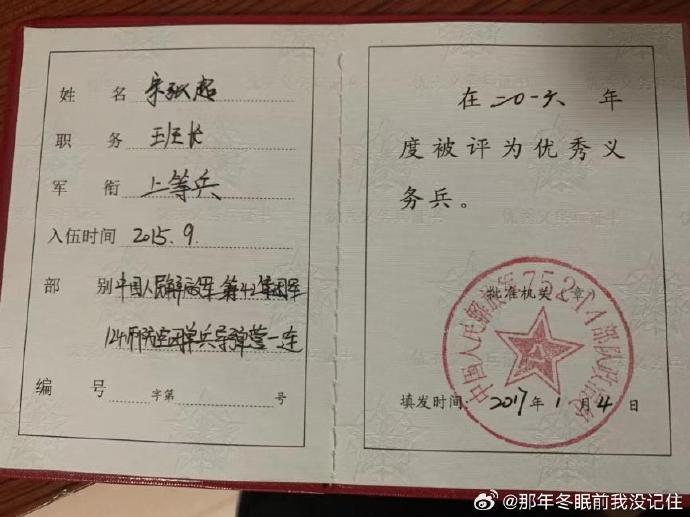 姓 名 宋张超
职 务 班长
军 衔 上等兵
入伍时间 2015.9.
部 别 中国人民解放军第42集团军
124师防空团单兵导弹营一连
编 号 字第 号
在二〇一六年
度被评为优秀义
务兵。
中国人民解放军75214部队
批准机关（章）
填发时间：2017年1月4日
@那年冬眠前我没记住